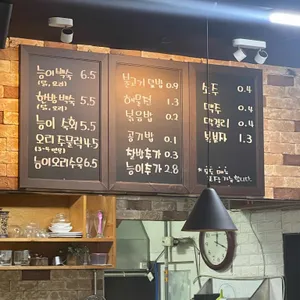 능이백숙 6.5
(닭, 오리)
한방백숙 5.5
(닭, 오리)
능이 숙회 5.5
오리 주물럭 4.5
능이오리수육 6.5
불고기 덮밥 0.9
해물전 1.3
볶음밥 0.2
공기밥 0.1
찰밥추가 0.3
능이추가 2.8
소주 0.4
맥주 0.4
막걸리 0.4
복분자 1.3